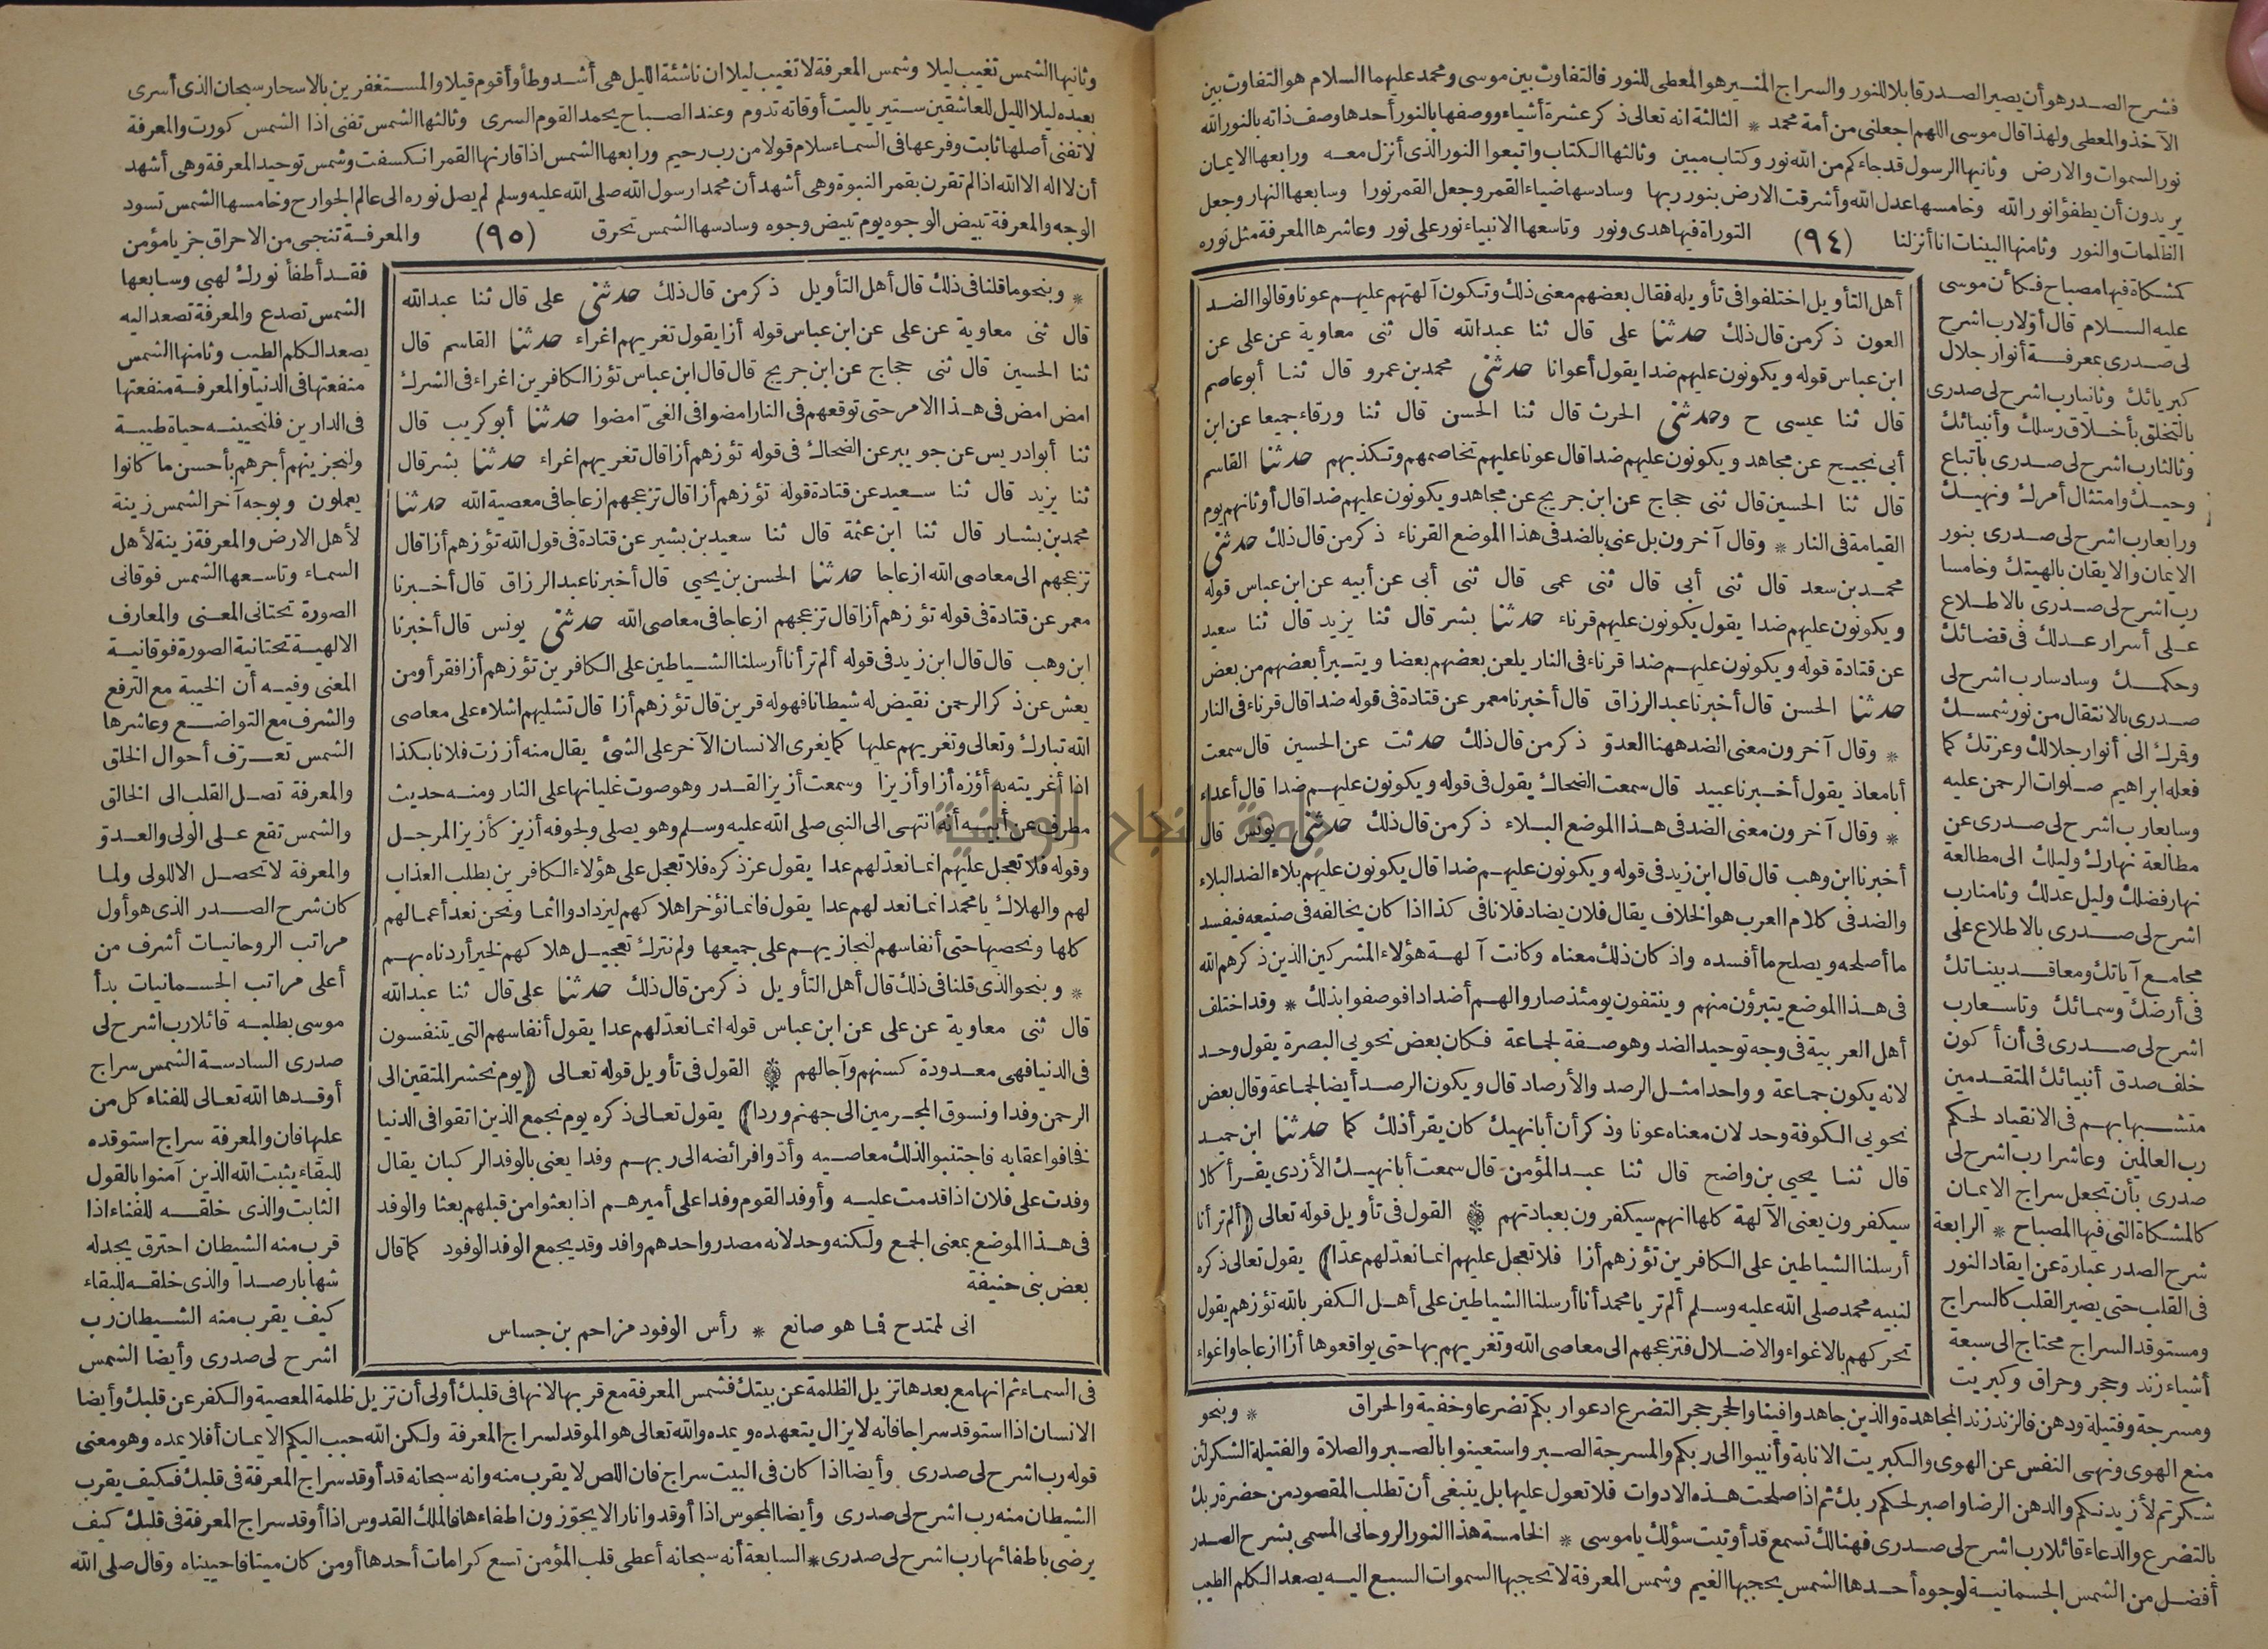 فشرح الصدر هو أن يصير الصدر قابلا للنور والسراج المنير هو المعطى للنور فالتفاوت بين موسى ومحمد عليهما السلام هو التفاوت بين
الآخذ والمعطى ولهذا قال موسى اللهم اجعلنى من أمة محمد * الثالثة انه تعالى ذكر عشرة أشياء ووصفها بالنور أحدها وصف ذاته بالنور الله
نور السموات والارض وثانيها الرسول قد جاءكم من الله نور وكتاب مبين وثالثها الكتاب واتبعوا النور الذى أنزل معه ورابعها الايمان
يريدون أن يطفؤا نور الله وخامسها عدل الله وأشرقت الارض بنور ربها وسادسها ضياء القمر وجعل القمر نورا وسابعها النهار وجعل
الظلمات والنور وثامنها البينات انا أنزلنا (٩٤) التوراة فيها هدى ونور وتاسعها الانبياء نور على نور وعاشرها المعرفة مثل نوره
كمشكاة فيها مصباح فكأن موسى
عليه السلام قال أولا رب اشرح
لى صدرى بمعرفة أنوار جلال
كبريائك وثانيا رب اشرح لى صدرى
بالتخلق بأخلاق رسلك وأنبيائك
وثالثا رب اشرح لى صدرى باتباع
وحيك وامتثال أمرك ونهيك
ورابعا رب اشرح لى صدرى بنور
الايمان والايقان بالهيتك وخامسا
رب اشرح لى صدرى بالاطلاع
على أسرار عدلك فى قضائك
وحكمك وسادسا رب اشرح لى
صدرى بالانتقال من نور شمسك
وقرك الى أنوار جلالك وعزتك كما
فعله ابراهيم صلوات الرحمن عليه
وسابعا رب اشرح لى صدرى عن
مطالعة نهارك وليلك الى مطالعة
نهار فضلك وليل عدلك وثامنا رب
اشرح لى صدرى بالاطلاع على
مجامع آياتك ومعاقد بيناتك
فى أرضك وسمائك وتاسعا رب
اشرح لى صدرى فى أن أكون
خلف صدق أنبيائك المتقدمين
متشبها بهم فى الانقياد لحكم
رب العالمين وعاشرا رب اشرح لى
صدرى بأن تجعل سراج الايمان
كالمشكاة التى فيها المصباح * الرابعة
شرح الصدر عبارة عن ايقاد النور
فى القلب حتى يصير القلب كالسراج
ومستوقد السراج محتاج الى سبعة
أشياء زند وحجر وحراق وكبريت
أهل التأويل اختلفوا فى تأويله فقال بعضهم معنى ذلك وتكون آلهتهم عليهم عونا وقالوا الضد
العون ذكر من قال ذلك حدثنا على قال ثنا عبدالله قال ثنى معاوية عن على عن
ابن عباس قوله ويكونون عليهم ضدا يقول أعوانا حدثنى محمد بن عمرو قال ثنا أبو عاصم
قال ثنا عيسى ح وحدثنى الحرث قال ثنا الحسن قال ثنا ورقاء جميعا عن ابن
أبى نجيح عن مجاهد ويكونون عليهم ضدا قال عونا عليهم تخاصمهم وتكذبهم حدثنا القاسم
قال ثنا الحسين قال ثنى حجاج عن ابن جريج عن مجاهد ويكونون عليهم ضدا قال أوثانهم يوم
القيامة فى النار * وقال آخرون بل عنى بالضد فى هذا الموضع القرناء ذكر من قال ذلك حدثنى
محمد بن سعد قال ثنى أبى قال ثنى عمى قال ثنى أبى عن أبيه عن ابن عباس قوله
ويكونون عليهم ضدا يقول يكونون عليهم قرناء حدثنا بشر قال ثنا يزيد قال ثنا سعيد
عن قتادة قوله ويكونون عليهم ضدا قرناء فى النار يلعن بعضهم بعضا ويتبرأ بعضهم من بعض
حدثنا الحسن قال أخبرنا عبد الرزاق قال أخبرنا معمر عن قتادة فى قوله ضدا قال قرناء فى النار
* وقال آخرون معنى الضد ههنا العدو ذكر من قال ذلك حدثت عن الحسين قال سمعت
أبا معاذ يقول أخبرنا عبيد قال سمعت الضحاك يقول فى قوله ويكونون عليهم ضدا قال أعداء
* وقال آخرون معنى الضد فى هذا الموضع البلاء ذكر من قال ذلك حدثنى يونس قال
أخبرنا ابن وهب قال قال ابن زيد فى قوله ويكونون عليهم ضدا قال يكونون عليهم بلاء الضد البلاء
والضد فى كلام العرب هو الخلاف يقال فلان يضاد فلانا فى كذا اذا كان يخالفه فى صنيعه فيفسد
ما أصلحه ويصلح ما أفسده واذ كان ذلك معناه وكانت آلهة هؤلاء المشركين الذين ذكرهم الله
فى هذا الموضع يتبرؤن منهم وينتفون يومئذ صاروا لهم أضدادا فوصفوا بذلك * وقد اختلف
أهل العربية فى وجه توحيد الضد وهو صفة لجماعة فكان بعض نحويى البصرة يقول وحد
لانه يكون جماعة وواحدا مثل الرصد والأرصاد قال ويكون الرصد أيضا لجماعة وقال بعض
نحويى الكوفة وحد لان معناه عونا وذكر أن أبا نهيك كان يقرأ ذلك كما حدثنا ابن حميد
قال ثنا يحيى بن واضح قال ثنا عبد المؤمن قال سمعت أبا نهيك الأزدى يقرأ كلا
سيكفرون يعنى الآلهة كلها انهم سيكفرون بعبادتهم * القول فى تأويل قوله تعالى (ألم تر أنا
أرسلنا الشياطين على الكافرين تؤزهم أزا فلا تعجل عليهم انما نعد لهم عدا) يقول تعالى ذكره
لنبيه محمد صلى الله عليه وسلم ألم تر يا محمد أنا أرسلنا الشياطين على أهل الكفر بالله تؤزهم يقول
تحركهم بالاغواء والاضلال فتزعجهم الى معاصى الله وتغريهم بها حتى يواقعوها أزا ازعاجا واغواء
* وبنحو
ومسرجة وفتيلة ودهن فالزند زند المجاهدة والذين جاهدوا فينا والحجر حجر التضرع ادعوا ربكم تضرعا وخفية والحراق
منع الهوى ونهى النفس عن الهوى والكبريت الانابة وأنيبوا الى ربكم والمسرجة الصبر واستعينوا بالصبر والصلاة والفتيلة الشكر لئن
شكرتم لأزيدنكم والدهن الرضا واصبر لحكم ربك ثم اذا صلحت هذه الادوات فلا تعول عليها بل ينبغى أن تطلب المقصود من حضرة ربك
بالتضرع والدعاء قائلا رب اشرح لى صدرى فهنالك تسمع قد أوتيت سؤلك يا موسى * الخامسة هذا النور الروحانى المسمى بشرح الصدر
أفضل من الشمس الجسمانية لوجوه أحدها الشمس يحجبها الغيم وشمس المعرفة لا تحجبها السموات السبع اليه يصعد الكلم الطيب
وثانيها الشمس تغيب ليلا وشمس المعرفة لا تغيب ليلا ان ناشئة الليل هى أشد وطأ وأقوم قيلا والمستغفرين بالاسحار سبحان الذى أسرى
بعبده ليلا الليل للعاشقين ستير ياليت أوقاته تدوم وعند الصباح يحمد القوم السرى وثالثها الشمس تفنى اذا الشمس كورت والمعرفة
لا تفنى أصلها ثابت وفرعها فى السماء سلام قولا من رب رحيم ورابعها الشمس اذا قارنها القمر انكسفت وشمس توحيد المعرفة وهى أشهد
أن لا اله الا الله اذا لم تقرن بقمر النبوة وهى أشهد أن محمدا رسول الله صلى الله عليه وسلم لم يصل نوره الى عالم الجوارح وخامسها الشمس تسود
الوجه والمعرفة تبيض الوجوه يوم تبيض وجوه وسادسها الشمس تحرق (٩٥) والمعرفة تنجى من الاحراق جزيا مؤمن
* وبنحو ما قلنا فى ذلك قال أهل التأويل ذكر من قال ذلك حدثنى على قال ثنا عبدالله
قال ثنى معاوية عن على عن ابن عباس قوله أزا يقول تغريهم اغراء حدثنا القاسم قال
ثنا الحسين قال ثنى حجاج عن ابن جريج قال قال ابن عباس تؤز الكافرين اغراء فى الشرك
امض امض فى هذا الامر حتى توقعهم فى النار امضوا فى الغى امضوا حدثنا أبو كريب قال
ثنا أبو ادريس عن جويبر عن الضحاك فى قوله تؤزهم أزا قال تغريهم اغراء حدثنا بشر قال
ثنا يزيد قال ثنا سعيد عن قتادة قوله تؤزهم أزا قال تزعجهم ازعاجا فى معصية الله حدثنا
محمد بن بشار قال ثنا ابن عثمة قال ثنا سعيد بن بشير عن قتادة فى قول الله تؤزهم أزا قال
تزعجهم الى معاصى الله ازعاجا حدثنا الحسن بن يحيى قال أخبرنا عبد الرزاق قال أخبرنا
معمر عن قتادة فى قوله تؤزهم أزا قال تزعجهم ازعاجا فى معاصى الله حدثنى يونس قال أخبرنا
ابن وهب قال قال ابن زيد فى قوله ألم تر أنا أرسلنا الشياطين على الكافرين تؤزهم أزا فقرأ ومن
يعش عن ذكر الرحمن نقيض له شيطانا فهو له قرين قال تؤزهم أزا قال تشليهم اشلاء على معاصى
الله تبارك وتعالى وتغريهم عليها كما يغرى الانسان الآخر على الشئ يقال منه أززت فلانا بكذا
اذا أغريته به أؤزه أزا وأزيزا وسمعت أزيز القدر وهو صوت غليانها على النار ومنه حديث
مطرف عن أبيه أنه انتهى الى النبى صلى الله عليه وسلم وهو يصلى ولجوفه أزيز كأزيز المرجل
وقوله فلا تعجل عليهم انما نعد لهم عدا يقول عز ذكره فلا تعجل على هؤلاء الكافرين بطلب العذاب
لهم والهلاك يا محمد انما نعد لهم عدا يقول فانما نؤخر اهلاكهم ليزدادوا اثما ونحن نعد أعمالهم
كلها ونحصيها حتى أنفاسهم لنجازيهم على جميعها ولم نترك تعجيل هلاكهم لخير أردناه بهم
* وبنحو الذى قلنا فى ذلك قال أهل التأويل ذكر من قال ذلك حدثنا على قال ثنا عبدالله
قال ثنى معاوية عن على عن ابن عباس قوله انما نعد لهم عدا يقول أنفاسهم التى يتنفسون
فى الدنيا فهى معدودة كسنهم وآجالهم * القول فى تأويل قوله تعالى (يوم نحشر المتقين الى
الرحمن وفدا ونسوق المجرمين الى جهنم وردا) يقول تعالى ذكره يوم نجمع الذين اتقوا فى الدنيا
فخافوا عقابه فاجتنبوا لذلك معاصيه وأدوا فرائضه الى ربهم وفدا يعنى بالوفد الركبان يقال
وفدت على فلان اذا قدمت عليه وأوفد القوم وفدا على أميرهم اذا بعثوا من قبلهم بعثا والوفد
فى هذا الموضع بمعنى الجمع ولكنه وحد لانه مصدر واحدهم وافد وقد يجمع الوفد الوفود كما قال
بعض بنى حنيفة
انى لممتدح فما هو صانع * رأس الوفود مزاحم بن جساس
فقد أطفأ نورك لهبى وسابعها
الشمس تصدع والمعرفة تصعد اليه
يصعد الكلم الطيب وثامنها الشمس
منفعتها فى الدنيا والمعرفة منفعتها
فى الدارين فلنحيينه حياة طيبة
ولنجزينهم أجرهم بأحسن ما كانوا
يعملون وبوجه آخر الشمس زينة
لأهل الارض والمعرفة زينة لأهل
السماء وتاسعها الشمس فوقانى
الصورة تحتانى المعنى والمعارف
الالهية تحتانية الصورة فوقانية
المعنى وفيه أن الخيبة مع الترفع
والشرف مع التواضع وعاشرها
الشمس تعرف أحوال الخلق
والمعرفة تصل القلب الى الخالق
والشمس تقع على الولى والعدو
والمعرفة لا تحصل الا للولى ولما
كان شرح الصدر الذى هو أول
مراتب الروحانيات أشرف من
أعلى مراتب الجسمانيات بدأ
موسى بطلبه قائلا رب اشرح لى
صدرى السادسة الشمس سراج
أوقدها الله تعالى للفناء كل من
عليها فان والمعرفة سراج استوقده
للبقاء يثبت الله الذين آمنوا بالقول
الثابت والذى خلقه للفناء اذا
قرب منه الشيطان احترق يجد له
شهابا رصدا والذى خلقه للبقاء
كيف يقرب منه الشيطان رب
اشرح لى صدرى وأيضا الشمس
فى السماء ثم انها مع بعدها تزيل الظلمة عن بيتك فشمس المعرفة مع قربها لانها فى قلبك أولى أن تزيل ظلمة المعصية والكفر عن قلبك وأيضا
الانسان اذا استوقد سراجا فانه لا يزال يتعهده ويمده والله تعالى هو الموقد لسراج المعرفة ولكن الله حبب اليكم الايمان أفلا يمده وهو معنى
قوله رب اشرح لى صدرى وأيضا اذا كان فى البيت سراج فان اللص لا يقرب منه وانه سبحانه قد أوقد سراج المعرفة فى قلبك فكيف يقرب
الشيطان منه رب اشرح لى صدرى وأيضا المجوس اذا أوقدوا نارا لا يجوزون اطفاءها فالملك القدوس اذا أوقد سراج المعرفة فى قلبك كيف
يرضى باطفائها رب اشرح لى صدرى * السابعة أنه سبحانه أعطى قلب المؤمن تسع كرامات أحدها أو من كان ميتا فأحييناه وقال صلى الله
جامعة النجاح الوطنية